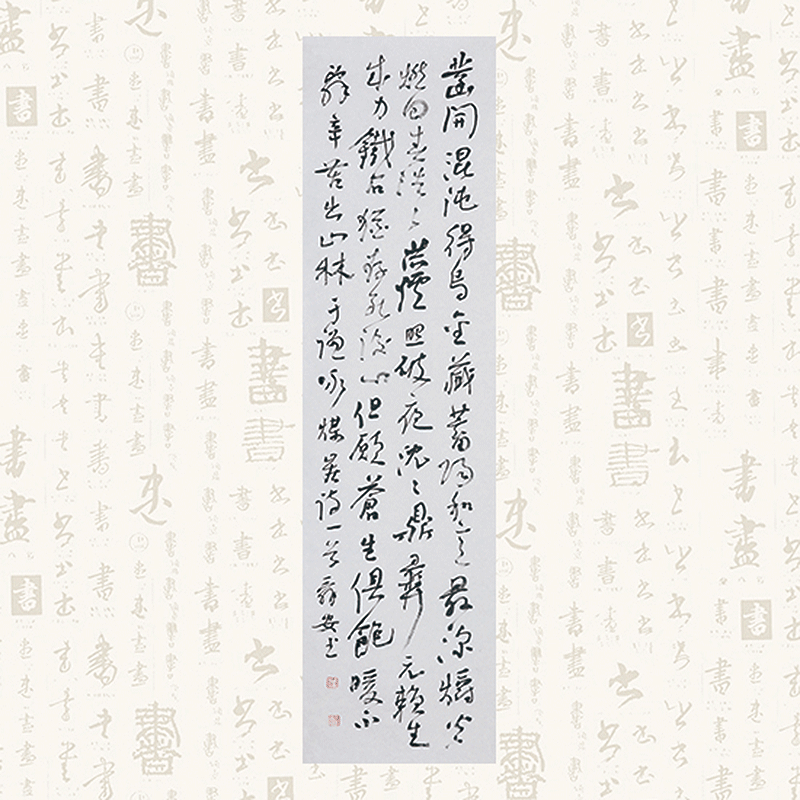 凿開混沌得烏金藏蓄陽和意最深爝火
燃回春浩々洪爐照破夜沈々鼎彝元賴生
成力鐵石猶存死後心但願蒼生俱飽暖不
辞辛苦出山林于謙詠煤炭诗一首安书